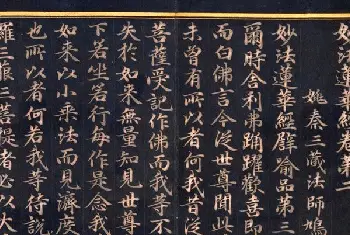 妙法蓮華經卷第二
姚秦三藏法師鳩
妙法蓮華經譬喻品第三
爾時舍利弗踊躍歡喜即
而白佛言今從世尊聞此
未曾有所以者何我昔從
菩薩受記作佛而我等不
失於如來無量知見世尊
下若坐若行每作是念我
如來以小乘法而見濟度
也所以者何若我等待說
羅三藐三菩提者必以大